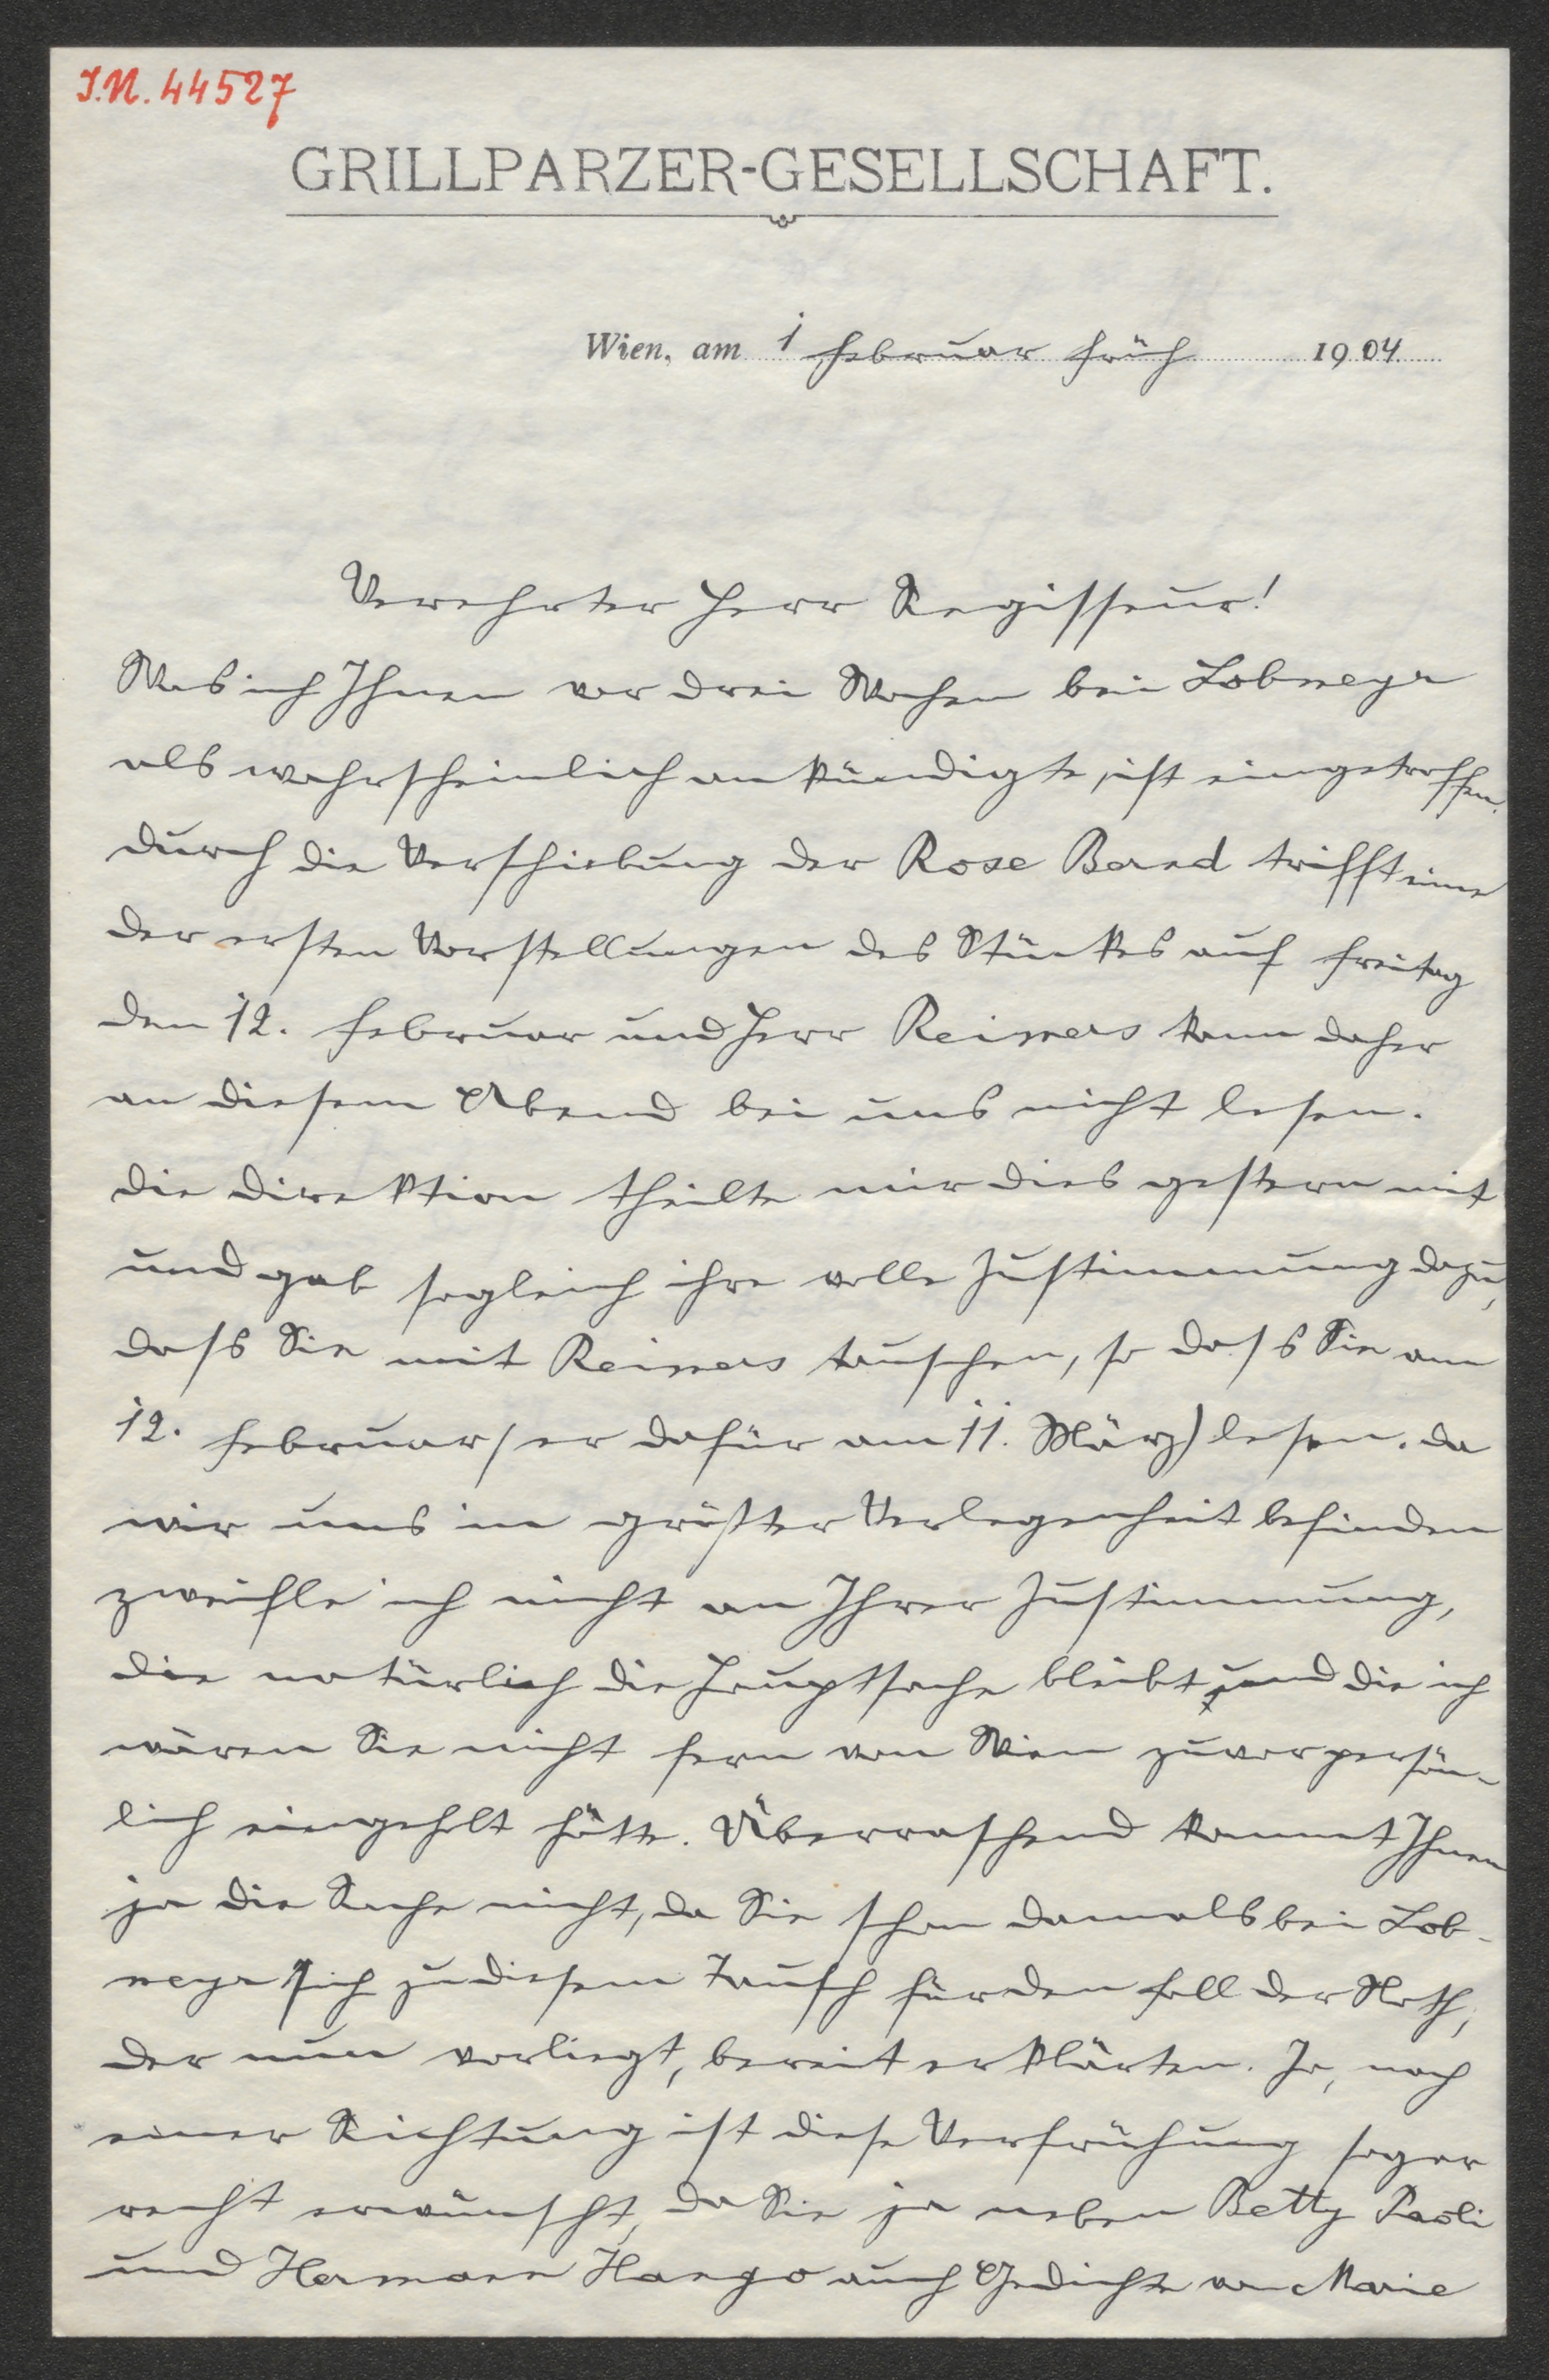 J.N. 44527
GRILLPARZER-GESELLSCHAFT.
Wien, am 1 Februar früh 1904
Verehrter Herr Regisseur!
Was ich Ihnen vor drei Wochen bei Lobmeyr
als wahrscheinlich ankündigte, ist eingetroffen.
Durch die Verschiebung der Rose Bernd trifft eine
der ersten Vorstellungen des Stückes auf Freitag
den 12. Februar und Herr Reimers kann daher
an diesem Abend bei uns nicht lesen.
Die Direktion theilte mir dies gestern mit
und gab sogleich ihre volle Zustimmung dazu,
dass Sie mit Reimers tauschen, so dass Sie am
12. Februar (er dafür am 11. März) lesen. Da
wir uns in größter Verlegenheit befinden
zweifle ich nicht an Ihrer Zustimmung,
die natürlich die Hauptsache bleibt und die ich
wären Sie nicht fern von Wien zuvor persön-
lich eingeholt hätte. Überraschend kommt Ihnen
ja die Sache nicht, da Sie schon damals bei Lob-
meyr sich zu diesem Tausch für den Fall der Noth,
der nun vorliegt, bereit erklärten. Ja, nach
einer Richtung ist diese Verfrühung sogar
recht erwünscht, da Sie ja neben Betty Paoli
und Hermann Hango auch Gedichte von Marie